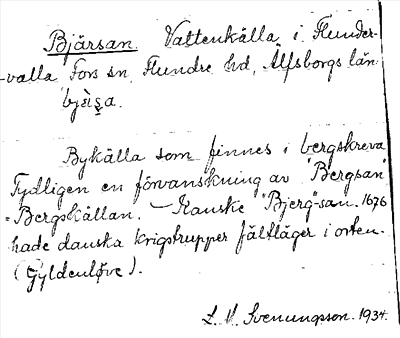 Bjärsan. Vattenkälla i Flunder-
-valla Fors sn, Flundre hd, Älfsborgs län
Bykälla som finnes i bergskreva
Tydligen en förvanskning av "Bergsan"
= Bergskällan. — Kanske "Bjerg"-san. 1676
hade danska krigstrupper fältläger i orten.
(Gyldenløve).
L. M. Svenungsson. 1934.